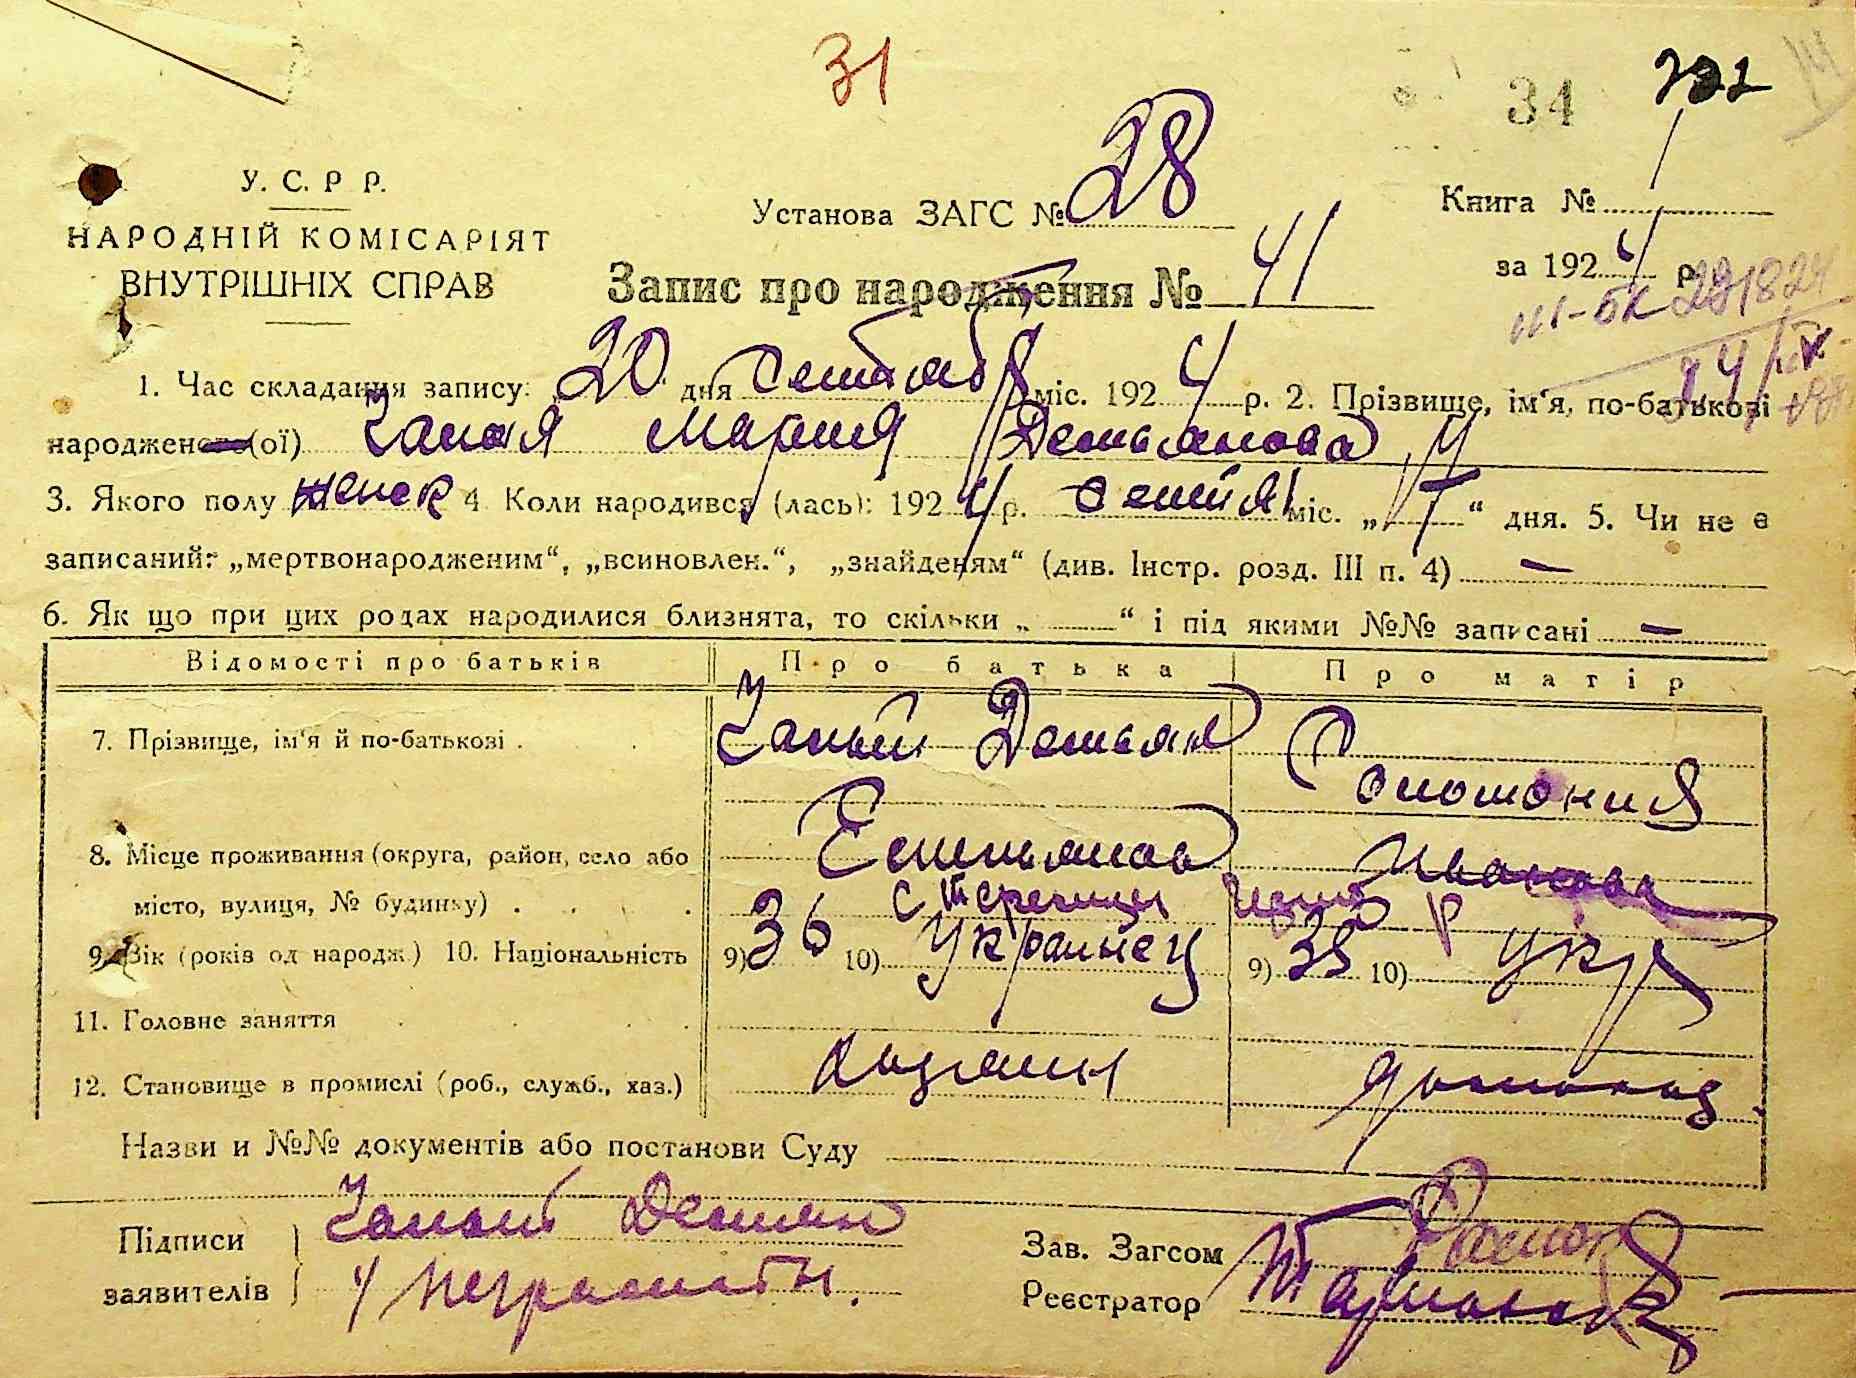 31
34
У. С. Р Р.
НАРОДНІЙ КОМІСАРІЯТ
ВНУТРІШНІХ СПРАВ
Установа ЗАГС № 28
Книга №
за 1924 р.
Запис про народження № 41
1. Час складання запису: „20“ дня сентябр міс. 1924 р. 2. Прізвище, ім‘я, по-батькові
народженого(ої) Мария Демьянова
3. Якого полу женск 4 Коли народився (лась): 1924 р. міс. „ “ дня. 5. Чи не є
записаний: „мертвонародженим“, „всиновлен.“, „знайденям“ (див. Інстр. розд. III п. 4) —
6. Як що при цих родах народилися близнята, то скільки „ “ і під якими №№ записані —
Відомості про батьків Про батька Про матір
7. Прізвище, ім‘я й по-батькові . Демьян
Соломония
8. Місце проживання (округа, район, село або Емельянов Иванова
місто, вулиця, № будинку) . с
9. Вік (років од народж.) 10. Національність 9) 36 10) Украинец 9) 35 10) укр
11. Головне заняття
12. Становище в промислі (роб., служб., хаз.)
Назви и №№ документів або постанови Суду
Підписи Демян
заявителів неграмотн.
Зав. Загсом
Реєстратор